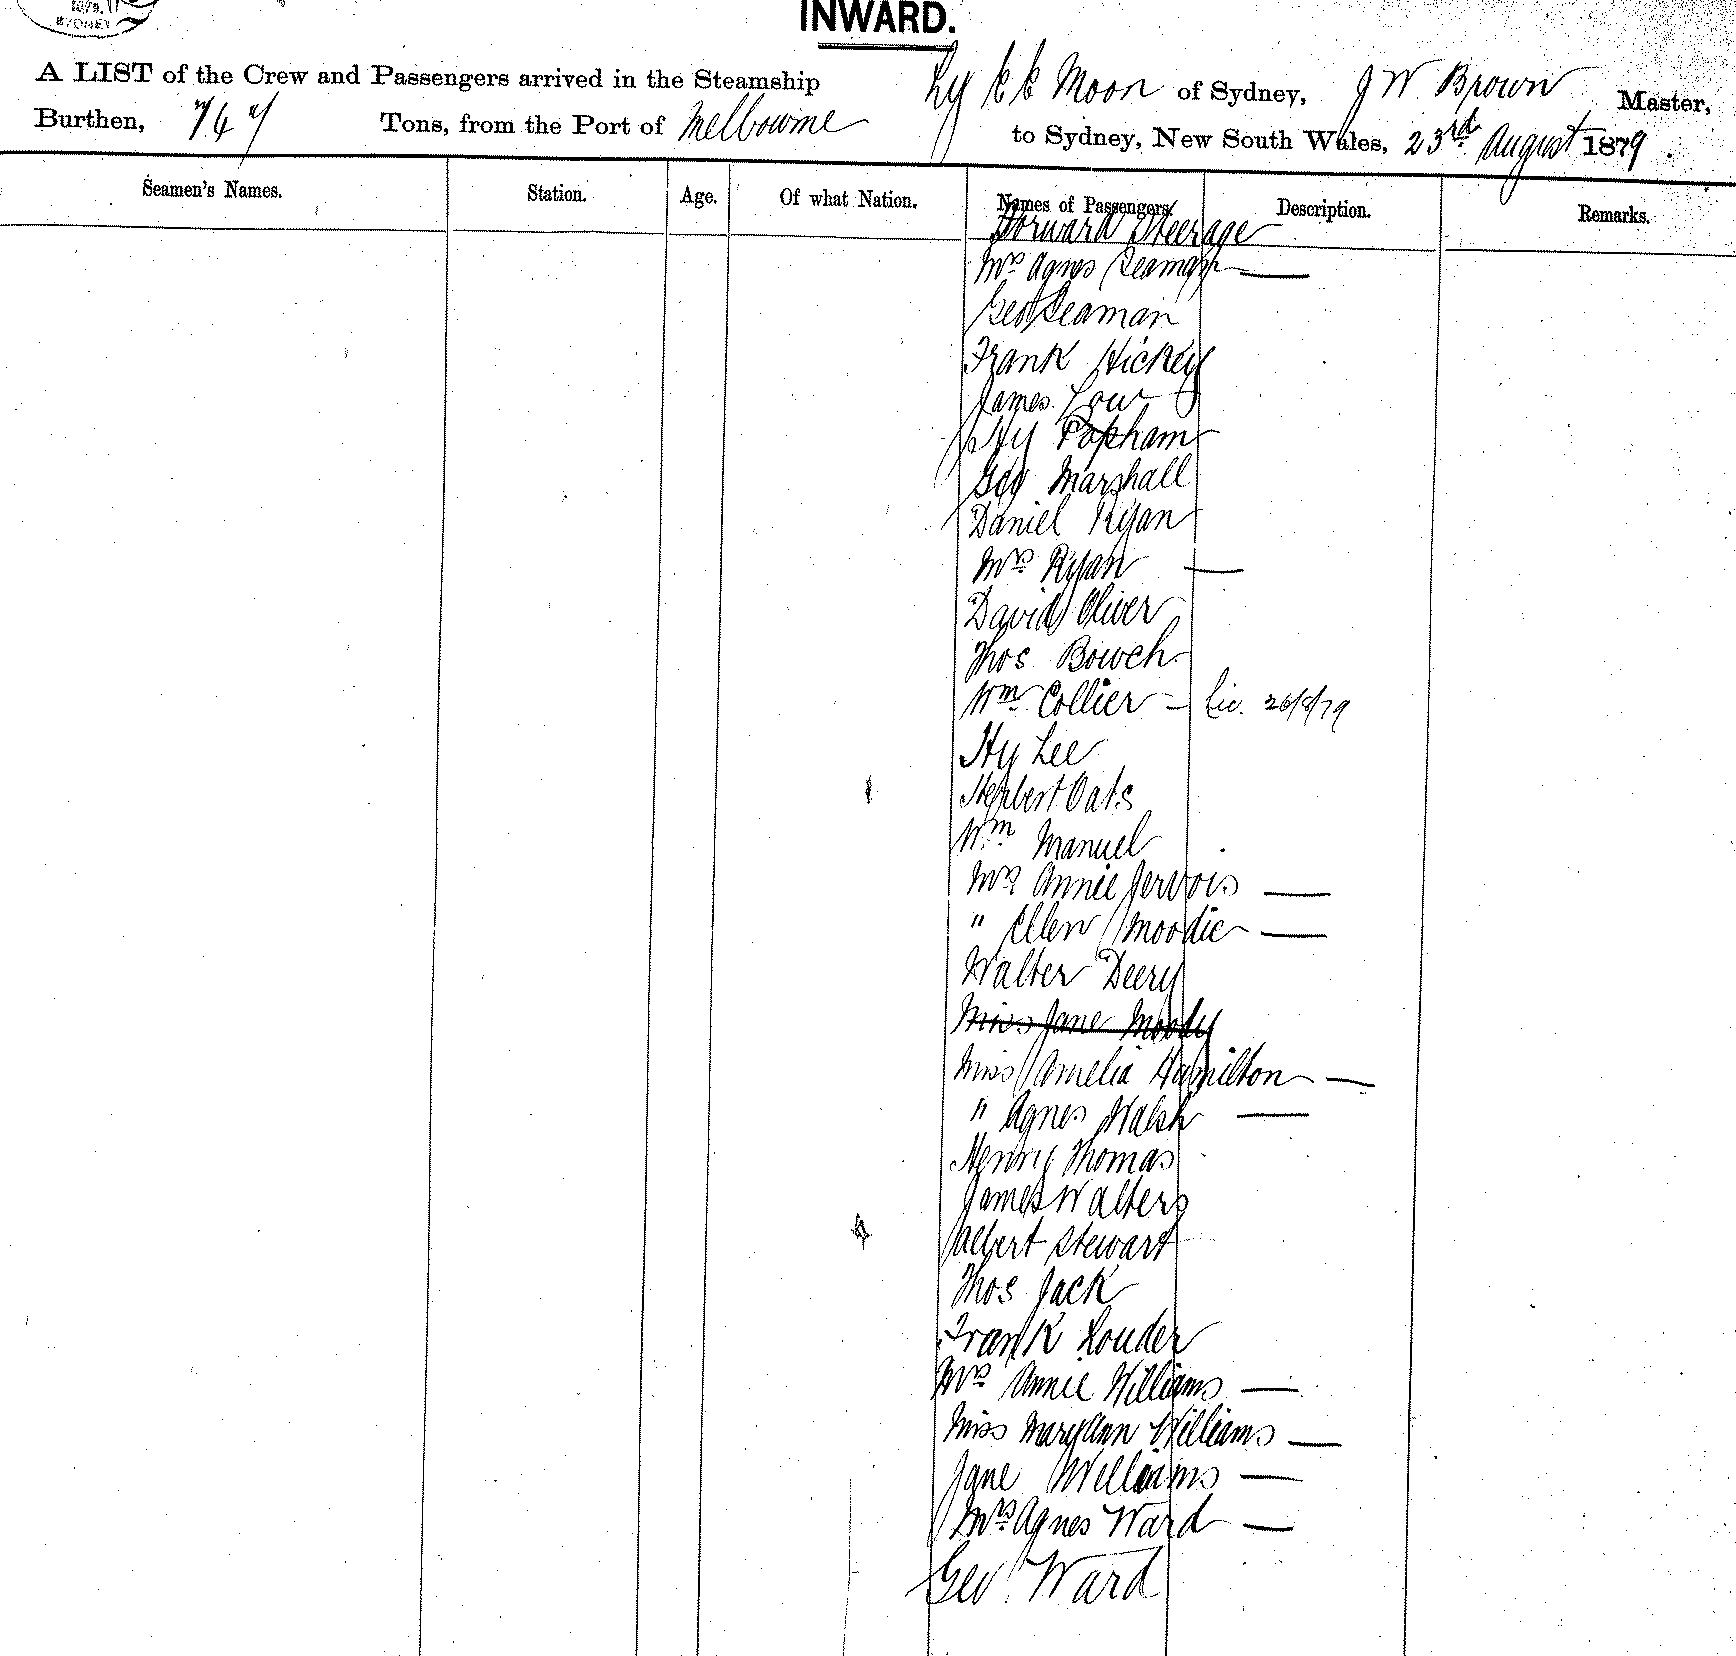 SYDNEY
INWARD.
A LIST of the Crew and Passengers arrived in the Steamship Ly E E Moon of Sydney, J W Brown Master,
Burthen, Tons, from the Port of Melbourne to Sydney, New South Wales, 23rd August 1879.
Seamen's Names. Station. Age. Of what Nation. Names of Passengers. Description. Remarks.
Forward Steerage
Mrs Agnes Seaman —
Geo Seaman
Frank Hickey
James Low
Hy Popham
Geo Marshall
Daniel Ryan
Mrs Ryan —
David Oliver
Thos Bowch
Wm Collier - Lic. 26/8/79
Hy Lee
Herbert Oats
Wm Manuel
Mrs Annie Jervois —
" Ellen Moodie —
Walter Deery
Miss Jane Moody
Miss Amelia Hamilton —
" Agnes Walsh —
Henry Thomas
James Walters
Albert Stewart
Thos Jack
Frank Louder
Mrs Annie Williams —
Miss Mary Ann Williams —
Jane Williams —
Mrs Agnes Ward —
Geo Ward